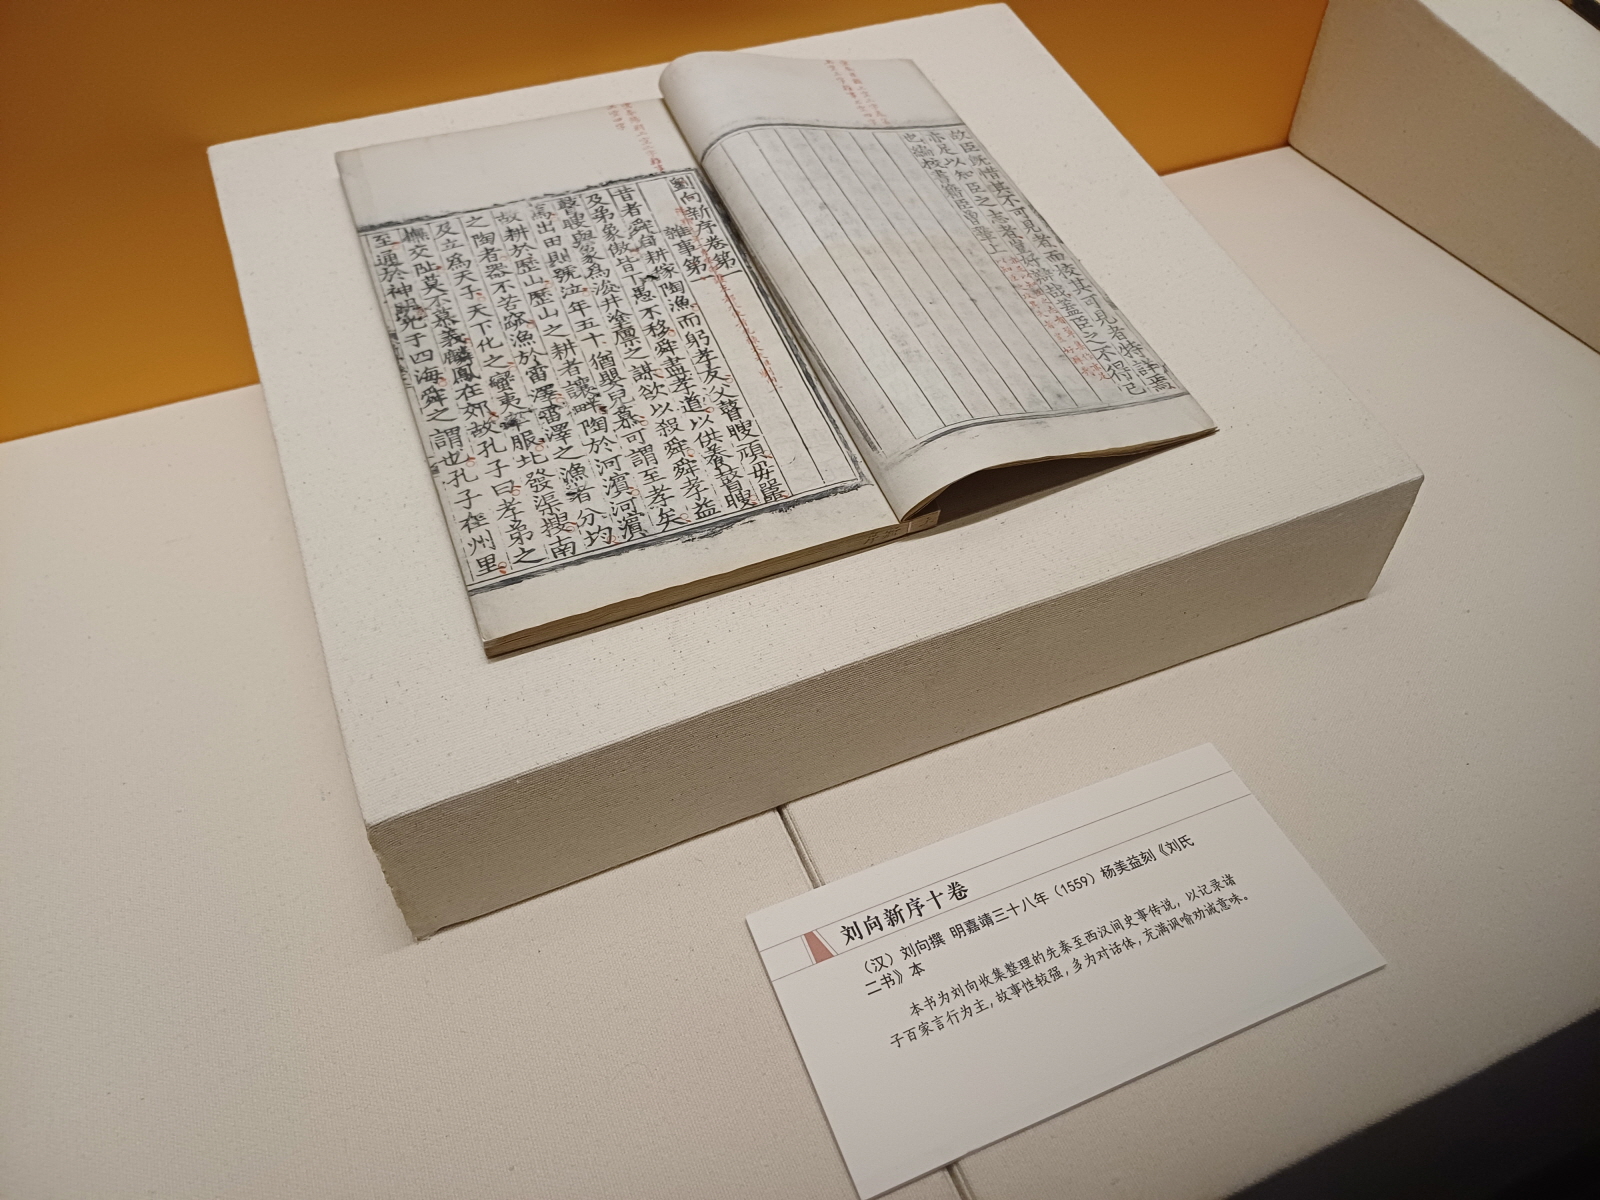 故臣既惜其不可見者而校其可見者特詳焉
亦足以知臣之志者豈好辯哉蓋臣之不得已
也編校書籍臣曾鞏上
劉向新序卷第一
雜事第一
昔者舜自耕稼陶漁而躬孝友父瞽瞍頑母嚚
及弟象傲皆下愚不移舜盡孝道以供養瞽瞍
瞽瞍與象為浚井塗廩之謀欲以殺舜舜孝益
篤出田則號泣年五十猶嬰兒慕可謂至孝矣
故耕於歷山歷山之耕者讓畔陶於河濱河濱
之陶者器不苦窳漁於雷澤雷澤之漁者分均
及立為天子天下化之蠻夷率服北發渠搜南
撫交阯莫不慕義麟鳳在郊故孔子曰孝弟之
至通於神明光于四海舜之謂也孔子在州里
刘向新序十卷
（汉）刘向撰 明嘉靖三十八年（1559）杨美益刻《刘氏
二书》本
本书为刘向收集整理的先秦至西汉间史事传说，以记录诸
子百家言行为主，故事性较强，多为对话体，充满讽喻劝诫意味。